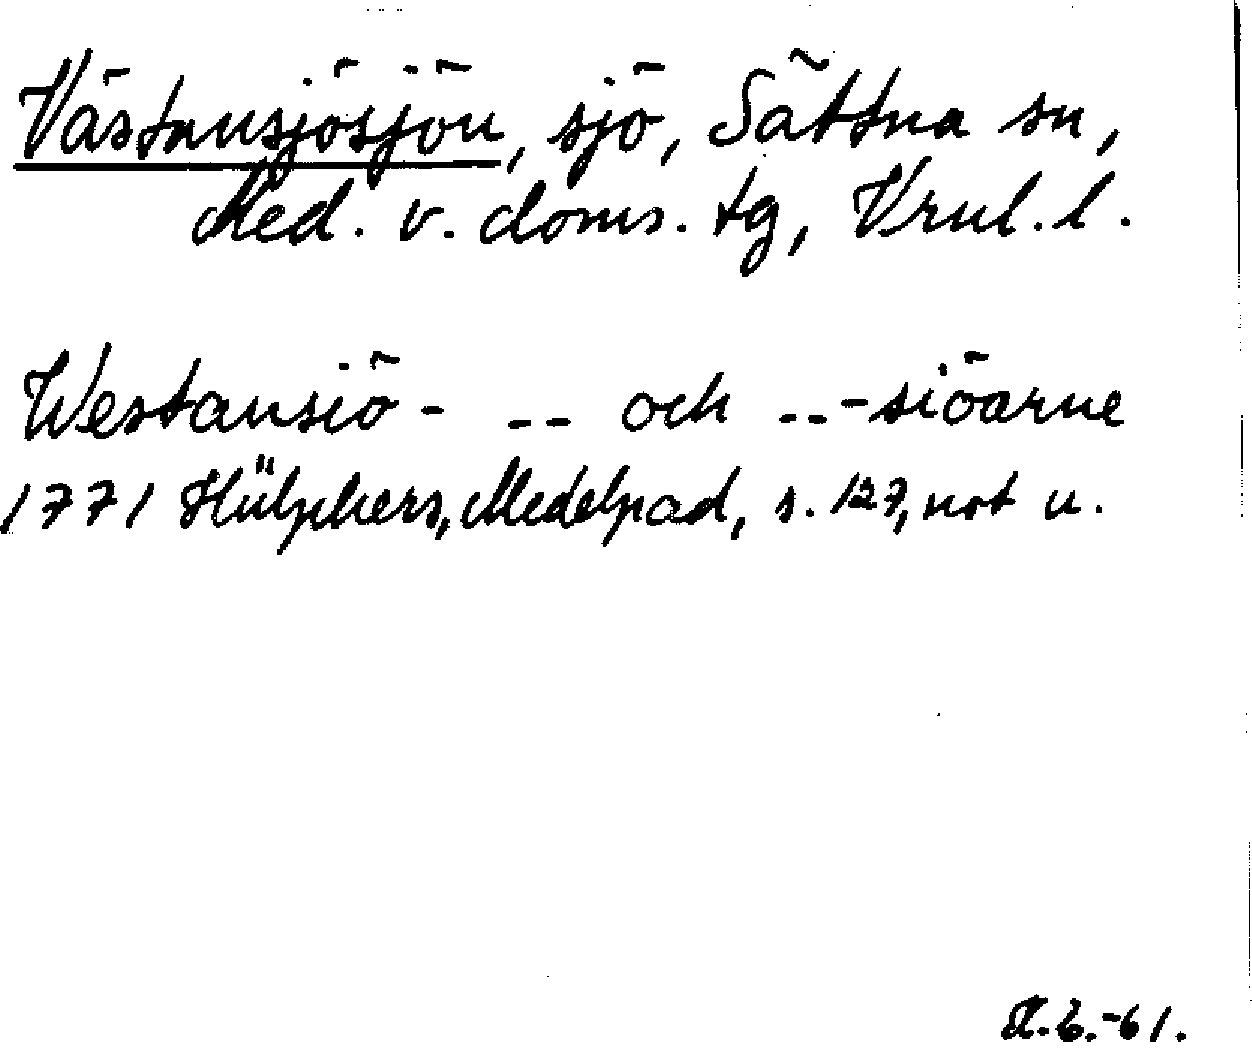 Västansjösjön, sjö, Sättna sn,
Med. v. doms. tg, Vrnl. l.
Westansiö- -- och ---siöarne
1771 Hülphers, Medelpad, s. 127, not u.